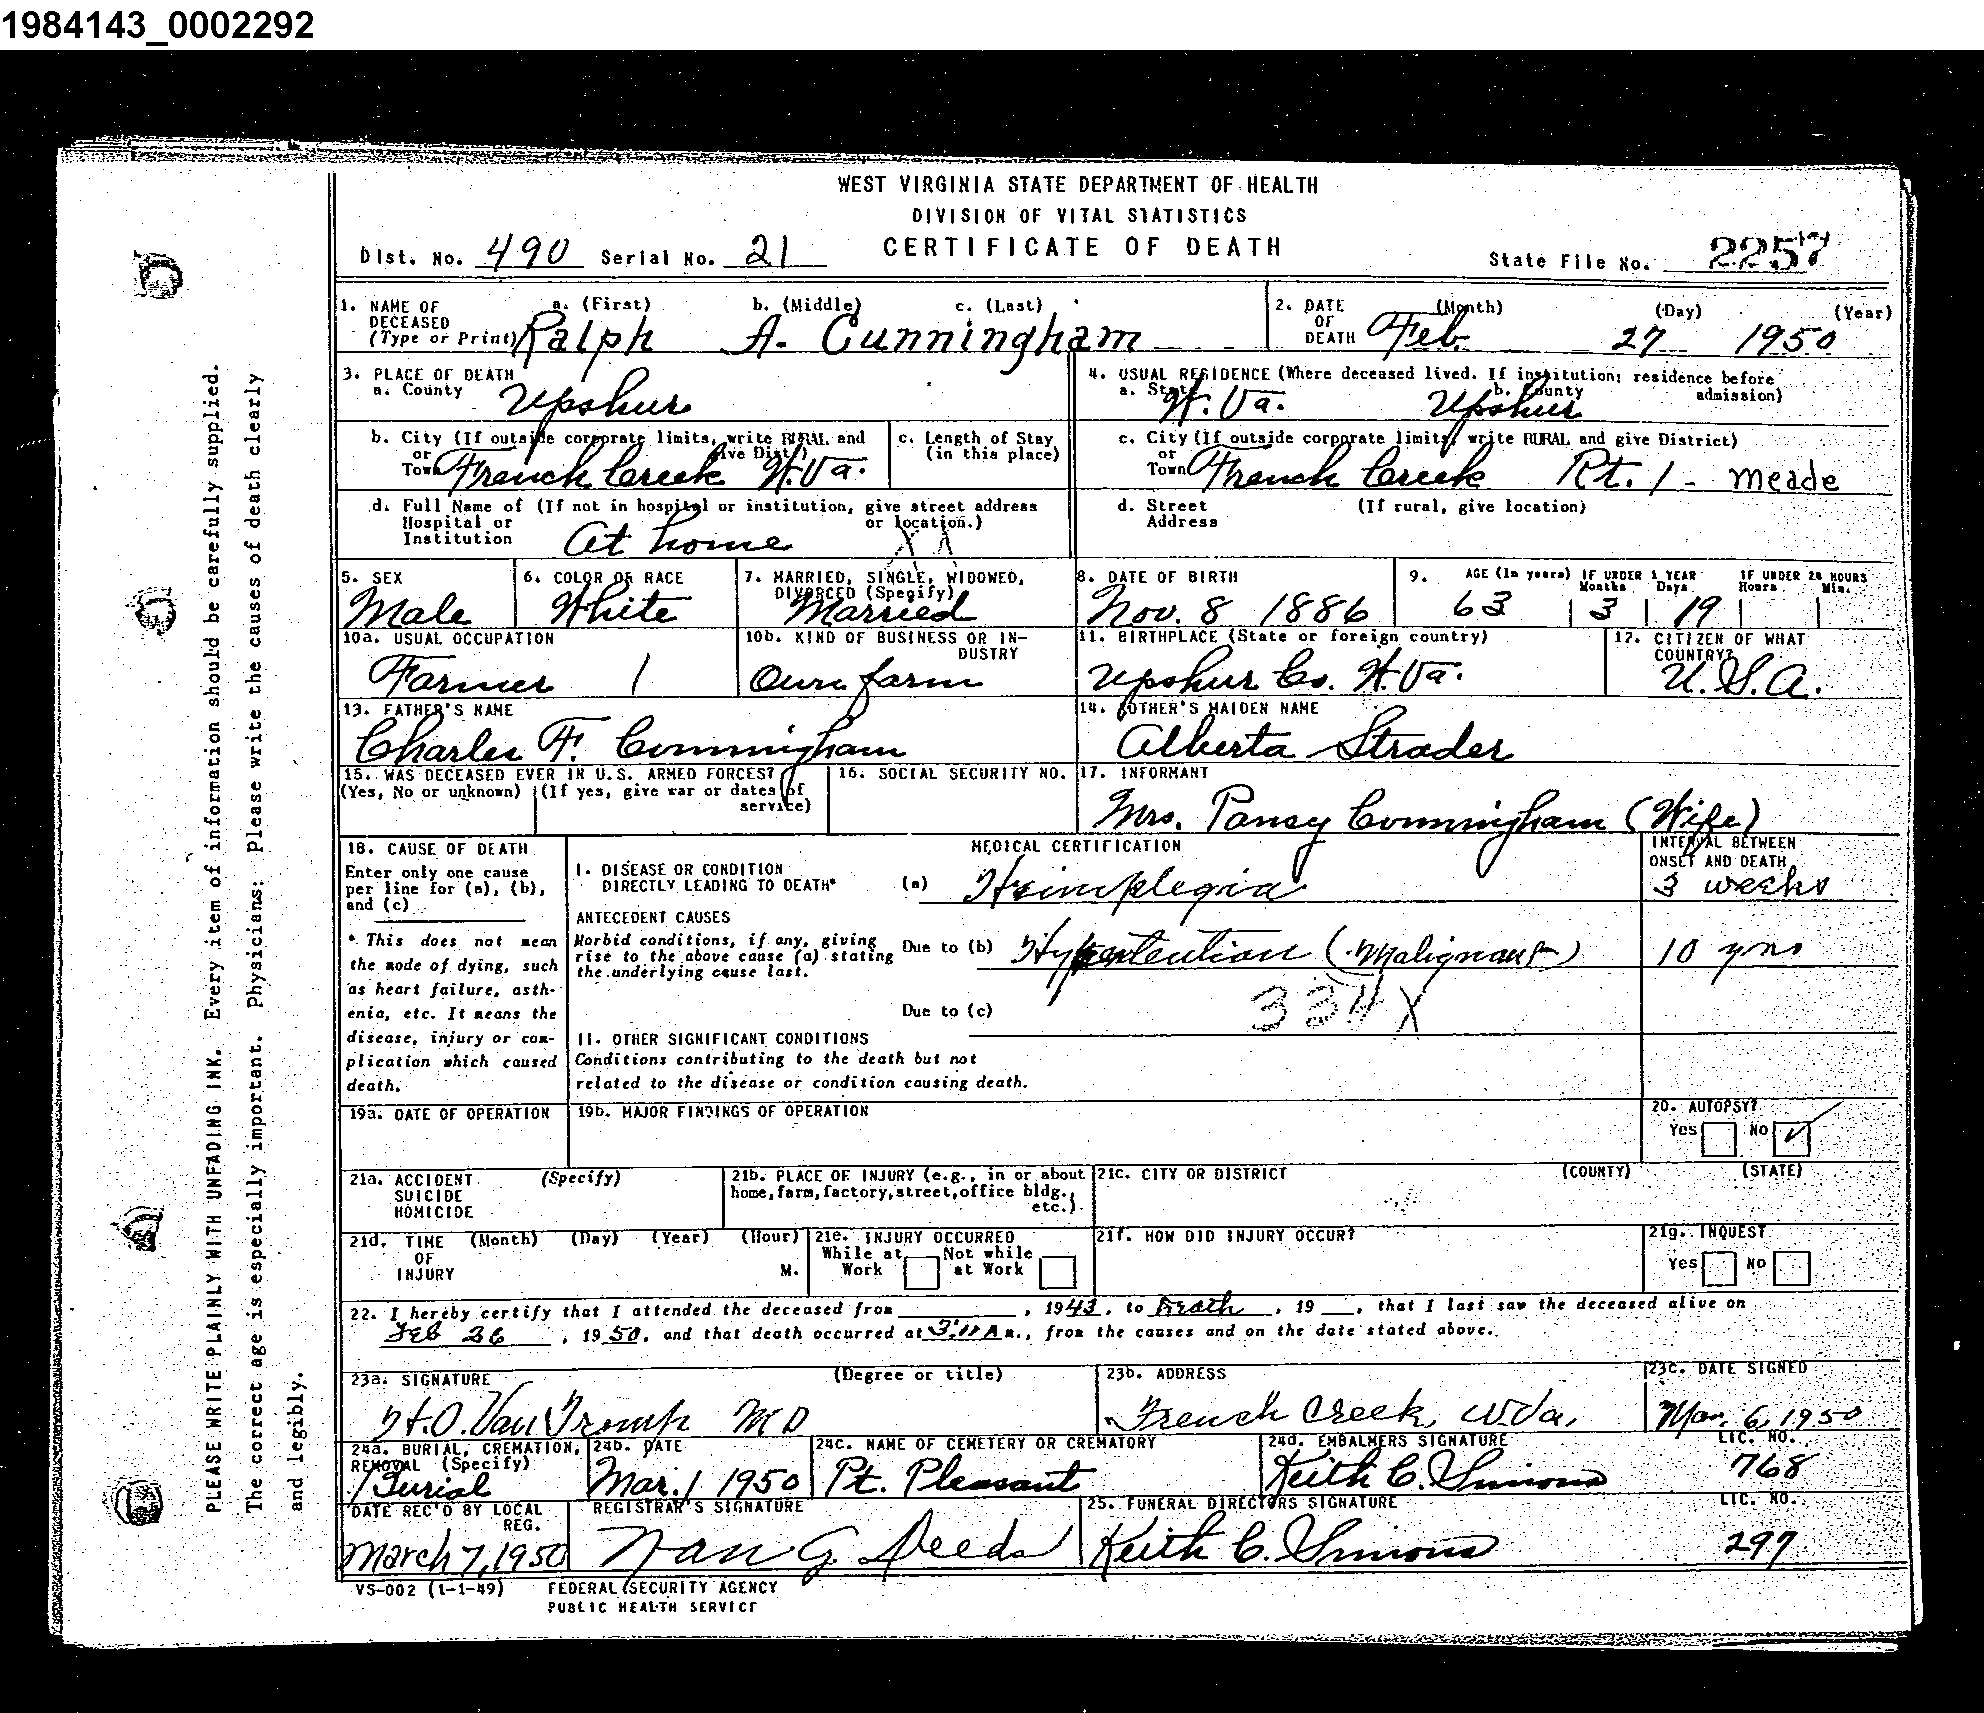 1984143_0002292
WEST VIRGINIA STATE DEPARTMENT OF HEALTH
DIVISION OF VITAL STATISTICS
CERTIFICATE OF DEATH
Dist. No. 490 Serial No. 21
State File No. 2257
1. NAME OF DECEASED (Type or Print) a. (First) b. (Middle) c. (Last)
Ralph A. Cunningham
2. DATE OF DEATH (Month) (Day) (Year)
Feb. 27 1950
3. PLACE OF DEATH
a. County Upshur
4. USUAL RESIDENCE (Where deceased lived. If institution: residence before admission)
a. State W. Va. b. County Upshur
b. City (If outside corporate limits, write RURAL and give Dist.) or Town French Creek W. Va.
c. Length of Stay (in this place)
c. City (If outside corporate limits, write RURAL and give District) or Town French Creek Rt. 1 - Meade
d. Full Name of (If not in hospital or institution, give street address or location.) Hospital or Institution At home XX
d. Street Address (If rural, give location)
5. SEX Male
6. COLOR OR RACE White
7. MARRIED, SINGLE, WIDOWED, DIVORCED (Specify) Married
8. DATE OF BIRTH Nov. 8 1886
9. AGE (In years) 63 IF UNDER 1 YEAR Months 3 Days 19 IF UNDER 24 HOURS Hours Min.
10a. USUAL OCCUPATION Farmer 1
10b. KIND OF BUSINESS OR INDUSTRY Own farm
11. BIRTHPLACE (State or foreign country) Upshur Co. W. Va.
12. CITIZEN OF WHAT COUNTRY? U.S.A.
13. FATHER'S NAME Charles F. Cunningham
14. MOTHER'S MAIDEN NAME Alberta Strader
15. WAS DECEASED EVER IN U.S. ARMED FORCES? (Yes, No or unknown) (If yes, give war or dates of service)
16. SOCIAL SECURITY NO.
17. INFORMANT Mrs. Pansy Cunningham (Wife)
18. CAUSE OF DEATH
Enter only one cause per line for (a), (b), and (c)
* This does not mean the mode of dying, such as heart failure, asthenia, etc. It means the disease, injury or complication which caused death.
MEDICAL CERTIFICATION
INTERVAL BETWEEN ONSET AND DEATH
I. DISEASE OR CONDITION DIRECTLY LEADING TO DEATH* (a) Hemiplegia 3 weeks
ANTECEDENT CAUSES
Morbid conditions, if any, giving rise to the above cause (a) stating the underlying cause last.
Due to (b) Hypertention (Malignant) 10 yrs
Due to (c) 334X
II. OTHER SIGNIFICANT CONDITIONS
Conditions contributing to the death but not related to the disease or condition causing death.
19a. DATE OF OPERATION
19b. MAJOR FINDINGS OF OPERATION
20. AUTOPSY? Yes No ✓
21a. ACCIDENT SUICIDE HOMICIDE (Specify)
21b. PLACE OF INJURY (e.g., in or about home, farm, factory, street, office bldg., etc.)
21c. CITY OR DISTRICT (COUNTY) (STATE)
21d. TIME OF INJURY (Month) (Day) (Year) (Hour) M.
21e. INJURY OCCURRED While at Work Not while at Work
21f. HOW DID INJURY OCCUR?
21g. INQUEST Yes No
22. I hereby certify that I attended the deceased from , 1943, to Death, 19 , that I last saw the deceased alive on
Feb 26, 1950, and that death occurred at m., from the causes and on the date stated above.
23a. SIGNATURE (Degree or title) H.O. Van Tromp MD
23b. ADDRESS French Creek, W.Va.
23c. DATE SIGNED Mar. 6, 1950
24a. BURIAL, CREMATION, REMOVAL (Specify) Burial
24b. DATE Mar. 1 1950
24c. NAME OF CEMETERY OR CREMATORY Pt. Pleasant
24d. EMBALMERS SIGNATURE Keith C. Simons LIC. NO. 768
DATE REC'D BY LOCAL REG. March 7, 1950
REGISTRAR'S SIGNATURE Nan G. Deeds
25. FUNERAL DIRECTORS SIGNATURE Keith C. Simons LIC. NO. 297
VS-002 (1-1-49) FEDERAL SECURITY AGENCY
PUBLIC HEALTH SERVICE
PLEASE WRITE PLAINLY WITH UNFADING INK. Every item of information should be carefully supplied.
The correct age is especially important. Physicians: please write the causes of death clearly
and legibly.